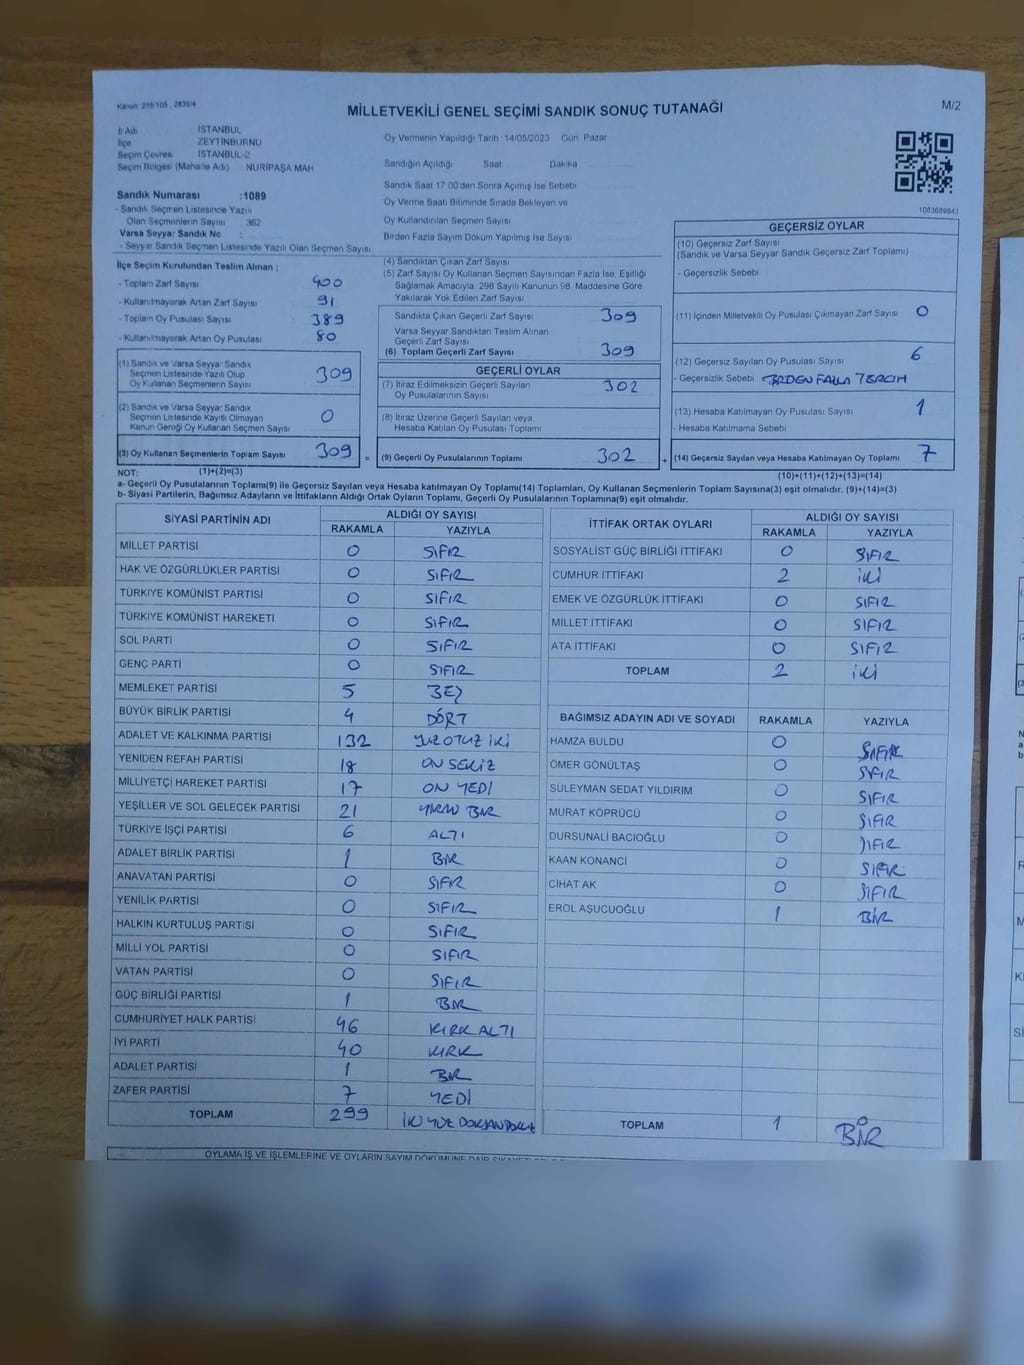 Kanun: 298/105 , 2839/4
MİLLETVEKİLİ GENEL SEÇİMİ SANDIK SONUÇ TUTANAĞI
M/2
İl Adı İSTANBUL
İlçe ZEYTİNBURNU
Seçim Çevresi İSTANBUL-2
Seçim Bölgesi (Mahalle Adı) NURİPAŞA MAH
Sandık Numarası :1089
- Sandık Seçmen Listesinde Yazılı
Olan Seçmenlerin Sayısı 362
Varsa Seyyar Sandık No :
- Seyyar Sandık Seçmen Listesinde Yazılı Olan Seçmen Sayısı
Oy Vermenin Yapıldığı Tarih 14/05/2023 Gün Pazar
Sandığın Açıldığı Saat Dakika
Sandık Saat 17:00'den Sonra Açılmış İse Sebebi
Oy Verme Saati Bitiminde Sırada Bekleyen ve
Oy Kullandırılan Seçmen Sayısı
Birden Fazla Sayım Döküm Yapılmış İse Sayısı
1083689843
İlçe Seçim Kurulundan Teslim Alınan :
- Toplam Zarf Sayısı 400
- Kullanılmayarak Artan Zarf Sayısı 91
- Toplam Oy Pusulası Sayısı 389
- Kullanılmayarak Artan Oy Pusulası 80
(1) Sandık ve Varsa Seyyar Sandık
Seçmen Listesinde Yazılı Olup
Oy Kullanan Seçmenlerin Sayısı 309
(2) Sandık ve Varsa Seyyar Sandık
Seçmen Listesinde Kayıtlı Olmayan
Kanun Gereği Oy Kullanan Seçmen Sayısı 0
(3) Oy Kullanan Seçmenlerin Toplam Sayısı 309 =
(4) Sandıktan Çıkan Zarf Sayısı
(5) Zarf Sayısı Oy Kullanan Seçmen Sayısından Fazla İse, Eşitliği
Sağlamak Amacıyla, 298 Sayılı Kanunun 98. Maddesine Göre
Yakılarak Yok Edilen Zarf Sayısı
Sandıkta Çıkan Geçerli Zarf Sayısı 309
Varsa Seyyar Sandıktan Teslim Alınan
Geçerli Zarf Sayısı
(6) Toplam Geçerli Zarf Sayısı 309
GEÇERLİ OYLAR
(7) İtiraz Edilmeksizin Geçerli Sayılan
Oy Pusulalarının Sayısı 302
(8) İtiraz Üzerine Geçerli Sayılan veya
Hesaba Katılan Oy Pusulası Toplamı
(9) Geçerli Oy Pusulalarının Toplamı 302 +
GEÇERSİZ OYLAR
(10) Geçersiz Zarf Sayısı
(Sandık ve Varsa Seyyar Sandık Geçersiz Zarf Toplamı)
- Geçersizlik Sebebi
(11) İçinden Milletvekili Oy Pusulası Çıkmayan Zarf Sayısı 0
(12) Geçersiz Sayılan Oy Pusulası Sayısı 6
- Geçersizlik Sebebi BİRDEN FAZLA TERCİH
(13) Hesaba Katılmayan Oy Pusulası Sayısı 1
- Hesaba Katılmama Sebebi
(14) Geçersiz Sayılan veya Hesaba Katılmayan Oy Toplamı 7
NOT: (1)+(2)=(3) (10)+(11)+(12)+(13)=(14)
a- Geçerli Oy Pusulalarının Toplamı(9) ile Geçersiz Sayılan veya Hesaba katılmayan Oy Toplamı(14) Toplamları, Oy Kullanan Seçmenlerin Toplam Sayısına(3) eşit olmalıdır. (9)+(14)=(3)
b- Siyasi Partilerin, Bağımsız Adayların ve İttifakların Aldığı Ortak Oyların Toplamı, Geçerli Oy Pusulalarının Toplamına(9) eşit olmalıdır.
SİYASİ PARTİNİN ADI ALDIĞI OY SAYISI
RAKAMLA YAZIYLA
MİLLET PARTİSİ 0 SIFIR
HAK VE ÖZGÜRLÜKLER PARTİSİ 0 SIFIR
TÜRKİYE KOMÜNİST PARTİSİ 0 SIFIR
TÜRKİYE KOMÜNİST HAREKETİ 0 SIFIR
SOL PARTİ 0 SIFIR
GENÇ PARTİ 0 SIFIR
MEMLEKET PARTİSİ 5 BEŞ
BÜYÜK BİRLİK PARTİSİ 4 DÖRT
ADALET VE KALKINMA PARTİSİ 132 YÜZ OTUZ İKİ
YENİDEN REFAH PARTİSİ 18 ON SEKİZ
MİLLİYETÇİ HAREKET PARTİSİ 17 ON YEDİ
YEŞİLLER VE SOL GELECEK PARTİSİ 21 YİRMİ BİR
TÜRKİYE İŞÇİ PARTİSİ 6 ALTI
ADALET BİRLİK PARTİSİ 1 BİR
ANAVATAN PARTİSİ 0 SIFIR
YENİLİK PARTİSİ 0 SIFIR
HALKIN KURTULUŞ PARTİSİ 0 SIFIR
MİLLİ YOL PARTİSİ 0 SIFIR
VATAN PARTİSİ 0 SIFIR
GÜÇ BİRLİĞİ PARTİSİ 1 BİR
CUMHURİYET HALK PARTİSİ 46 KIRK ALTI
İYİ PARTİ 40 KIRK
ADALET PARTİSİ 1 BİR
ZAFER PARTİSİ 7 YEDİ
TOPLAM 299 İKİ YÜZ DOKSAN DOKUZ
İTTİFAK ORTAK OYLARI ALDIĞI OY SAYISI
RAKAMLA YAZIYLA
SOSYALİST GÜÇ BİRLİĞİ İTTİFAKI 0 SIFIR
CUMHUR İTTİFAKI 2 İKİ
EMEK VE ÖZGÜRLÜK İTTİFAKI 0 SIFIR
MİLLET İTTİFAKI 0 SIFIR
ATA İTTİFAKI 0 SIFIR
TOPLAM 2 İKİ
BAĞIMSIZ ADAYIN ADI VE SOYADI RAKAMLA YAZIYLA
HAMZA BULDU 0 SIFIR
ÖMER GÖNÜLTAŞ 0 SIFIR
SÜLEYMAN SEDAT YILDIRIM 0 SIFIR
MURAT KÖPRÜCÜ 0 SIFIR
DURSUNALİ BACIOĞLU 0 SIFIR
KAAN KONANCİ 0 SIFIR
CİHAT AK 0 SIFIR
EROL AŞUCUOĞLU 1 BİR
TOPLAM 1 BİR
OYLAMA İŞ VE İŞLEMLERİNE VE OYLARIN SAYIM DÖKÜMÜNE DAİR